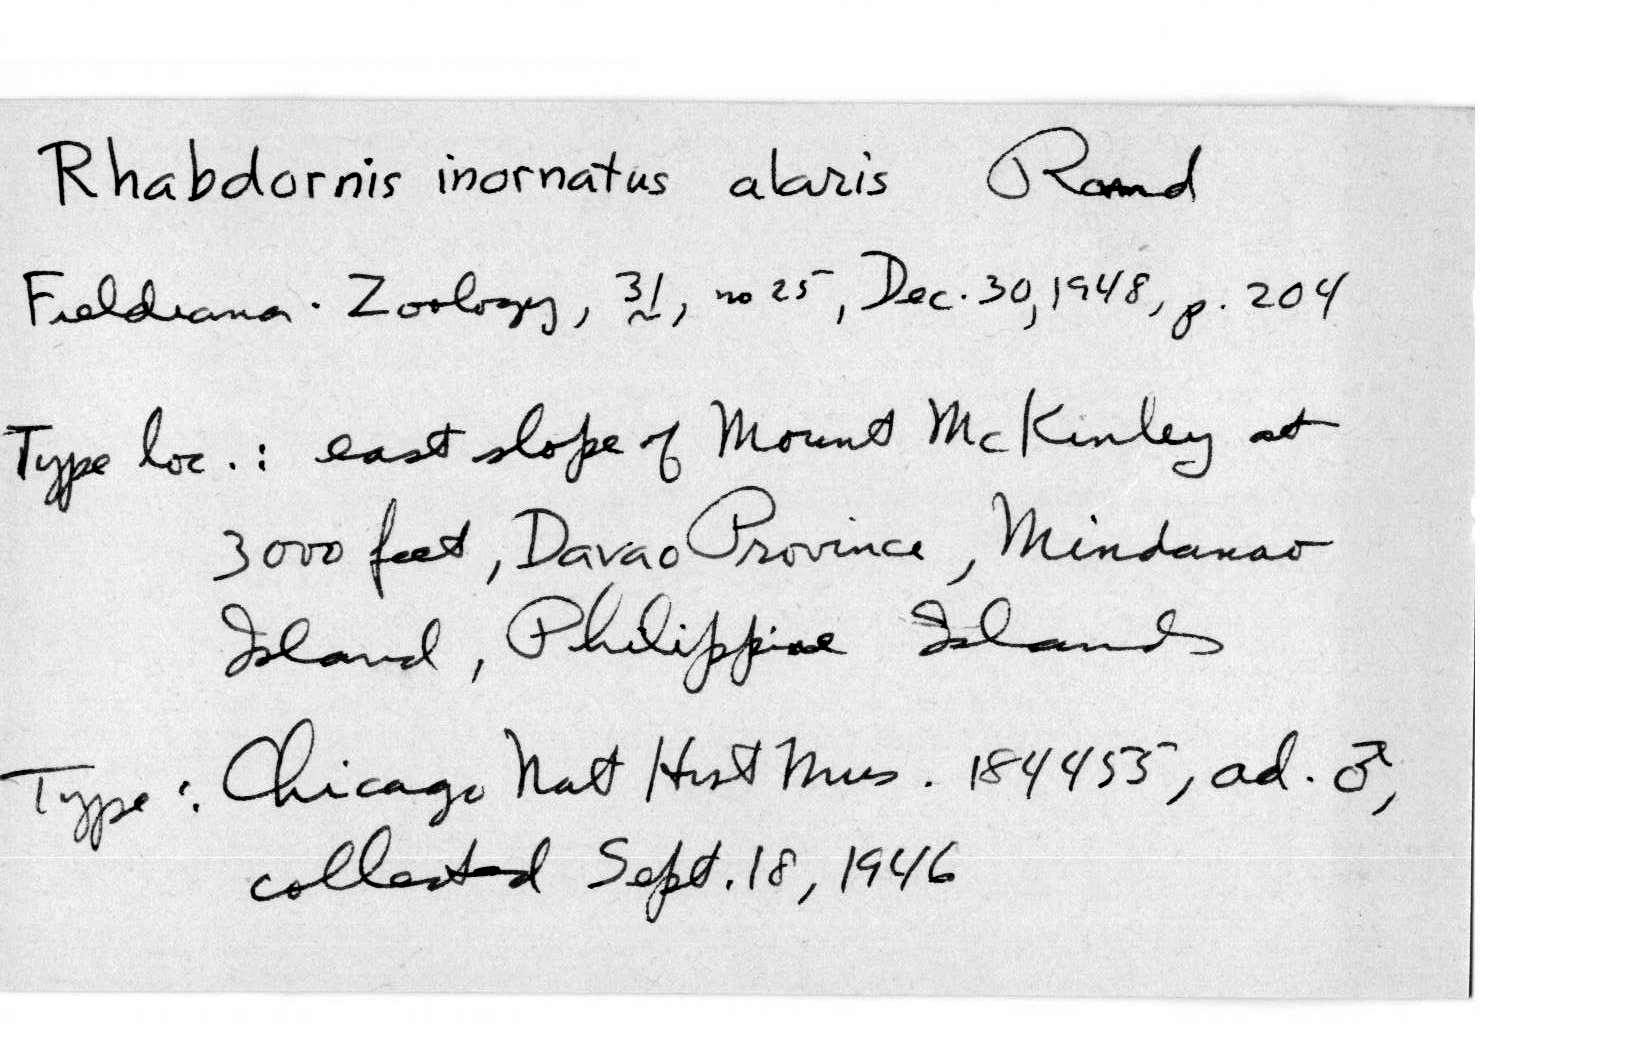 Rhabdornis inornatus alaris Rand
Fieldiana. Zoology, 31, no 25, Dec. 30, 1948, p. 204
Type loc.: east slope of Mount McKinley at
3000 feet, Davao Province, Mindanao
Island, Philippine Islands
Type: Chicago Nat Hist Mus. 184455, ad. ♂,
collected Sept. 18, 1946